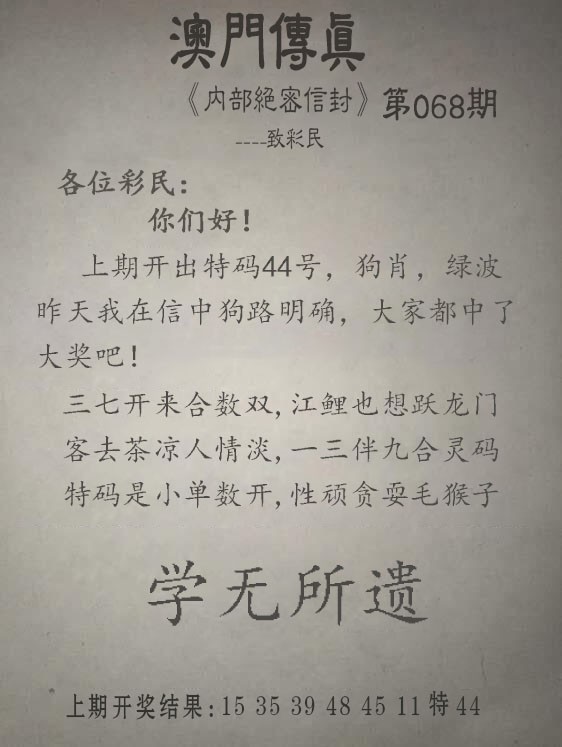 澳門傳眞
《内部絕密信封》第068期
----致彩民
各位彩民:
你们好!
上期开出特码44号，狗肖，绿波
昨天我在信中狗路明确，大家都中了
大奖吧!
三七开来合数双,江鲤也想跃龙门
客去茶凉人情淡,一三伴九合灵码
特码是小单数开,性顽贪耍毛猴子
学无所遗
上期开奖结果:15 35 39 48 45 11 特 44